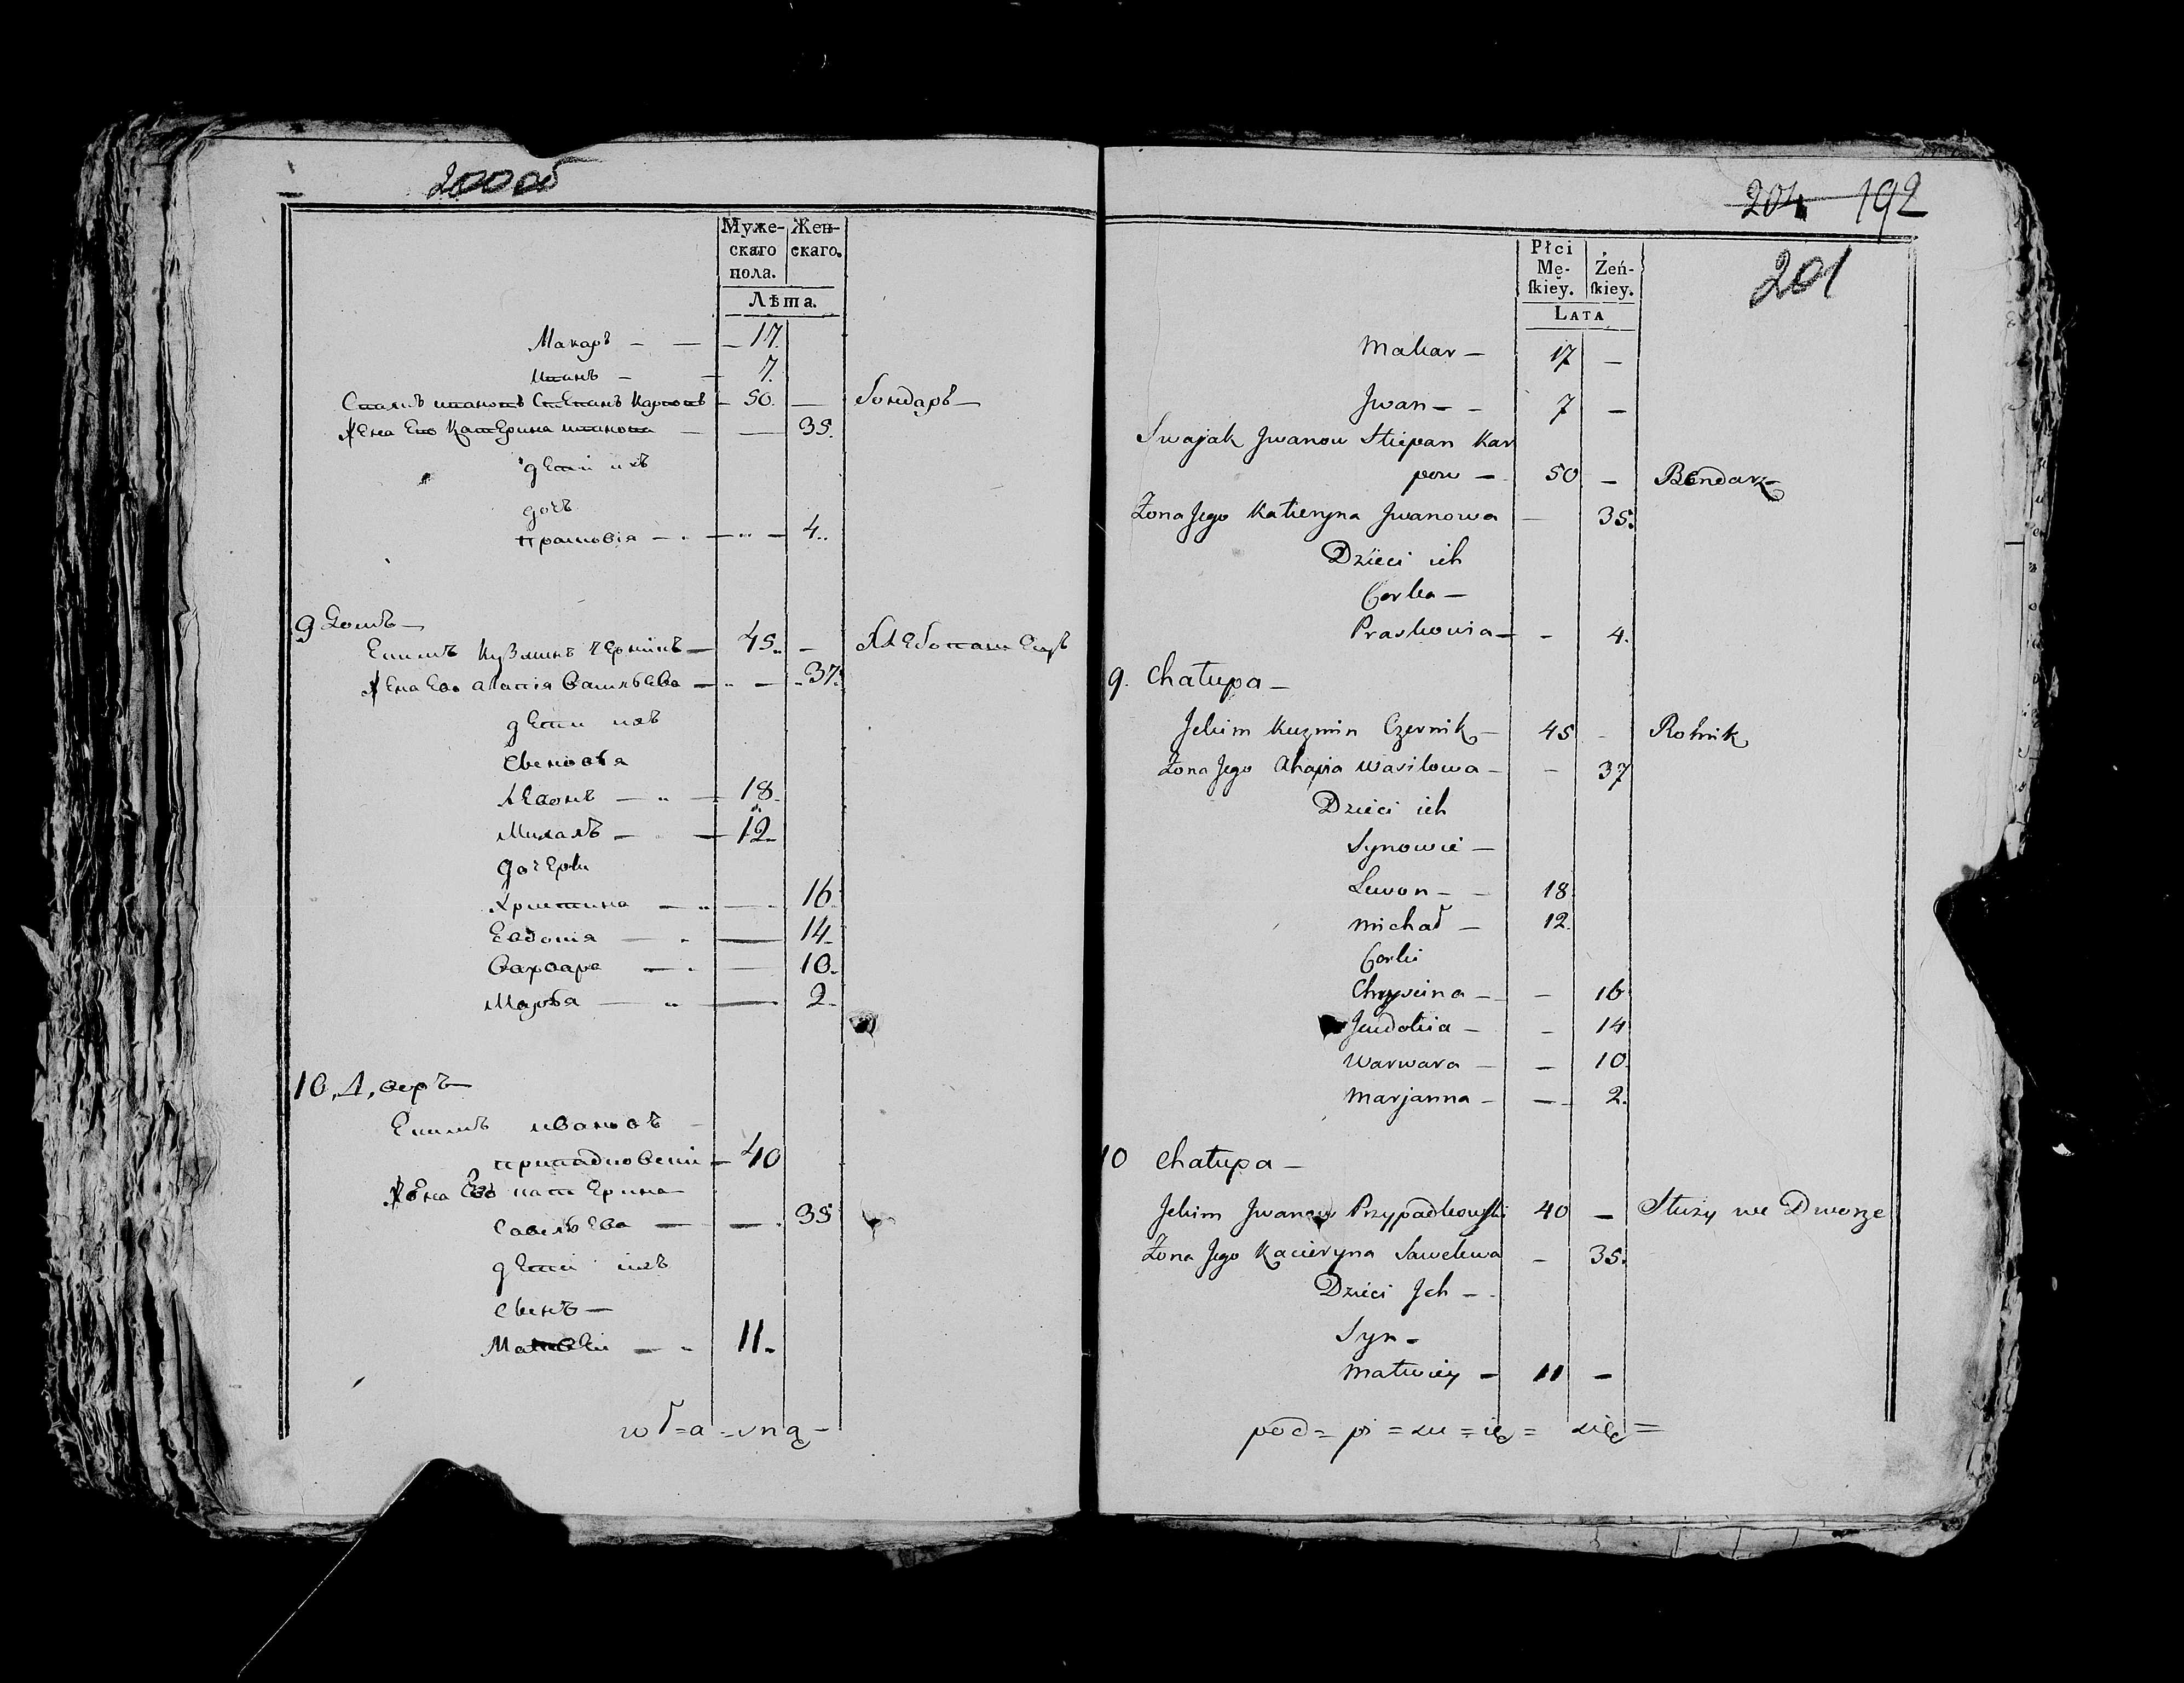 200 об
Муже-
скаго
пола.
Жен-
скаго.
Лѣта.
Макаръ — — — 17.
Иванъ — — 7.
50. — бондарь —
Жена Его Катерина Иванова — — 35.
дети ихъ
дочь
Прасковія — — 4.
9 Домъ —
Екимъ Кузминъ Черникъ — 45. — хлебопашецъ
Жена Его Агапія Васильева — — 37.
дети ихъ
Левонъ — 18.
Михалъ — 12.
дочери
Христина — — 16.
Евдокія — — 14.
Варвара — — 10.
Марья — — 2.
10. Дворъ —
Екимъ Ивановъ
Припадковскій — 40
Жена Его Катерина
Савельева — — 35
дети ихъ
сынъ —
Матвей — 11.
204 192
201
Płci
Mę-
ſkiey.
Żeń-
ſkiey.
LATA
Makar — 17 —
Jwan — 7 —
Swajak Jwanow Stiepan Kar
pow — 50 — Bendarz
Żona Jego Katieryna Jwanowa — 35.
Dzieci ich
Corka —
Praskowia — - 4.
9. Chałupa —
Jekim Kuzmin Czernik — 45 - Rolnik
Żona Jego Ahapia Wasilowa — - 37
Dzieci ich
Synowie —
Lewon — - 18
Michał — 12.
Corki
Chrysćina — - 16
Jewdokia — - 14
Warwara — — 10.
Marjanna — — 2.
10 Chałupa —
Jekim Jwanow Przypadkowski 40 — Służy we Dworze
Żona Jego Kacieryna Sawelewa - 35.
Dzieci Jch —
Syn —
Matwiey — 11 —